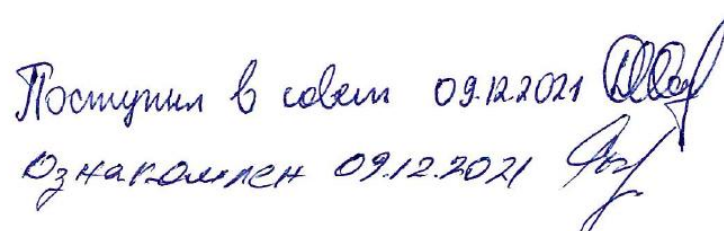 Поступил в совет 09.12.2021
Ознакомлен 09.12.2021